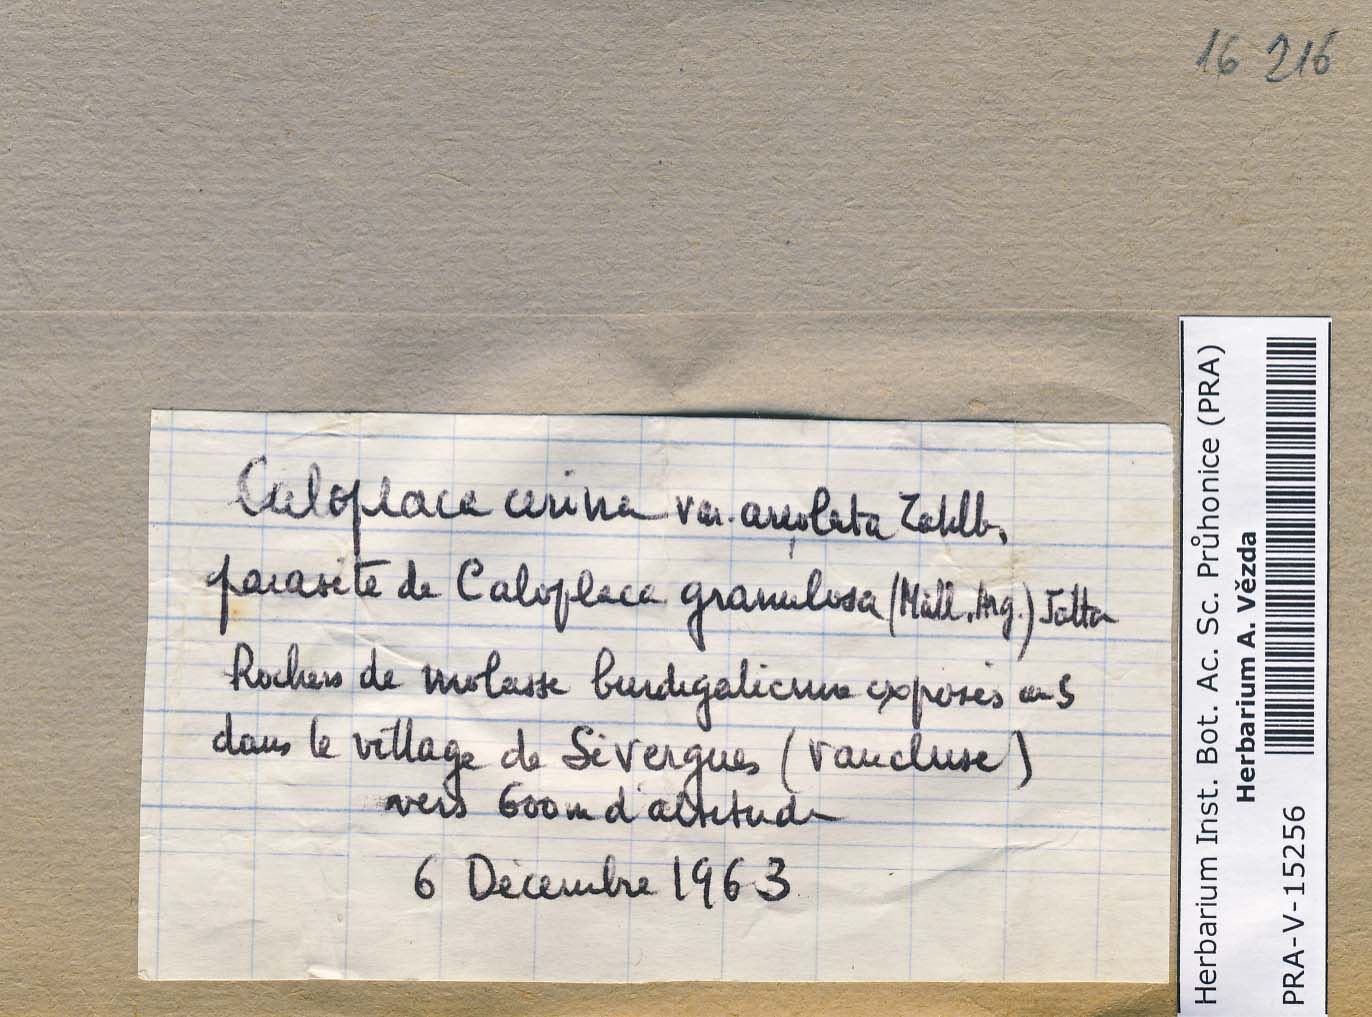 16 216
Caloplaca cerina var. areolata Zahlb.
parasite de Caloplaca granulosa (Müll. Arg.) Jatta
Rochers de molasse burdigalienne exposés au S
dans le village de Sivergues (Vaucluse)
vers 600m d'altitude
6 Décembre 1963
Herbarium Inst. Bot. Ac. Sc. Průhonice (PRA)
Herbarium A. Vězda
PRA-V-15256